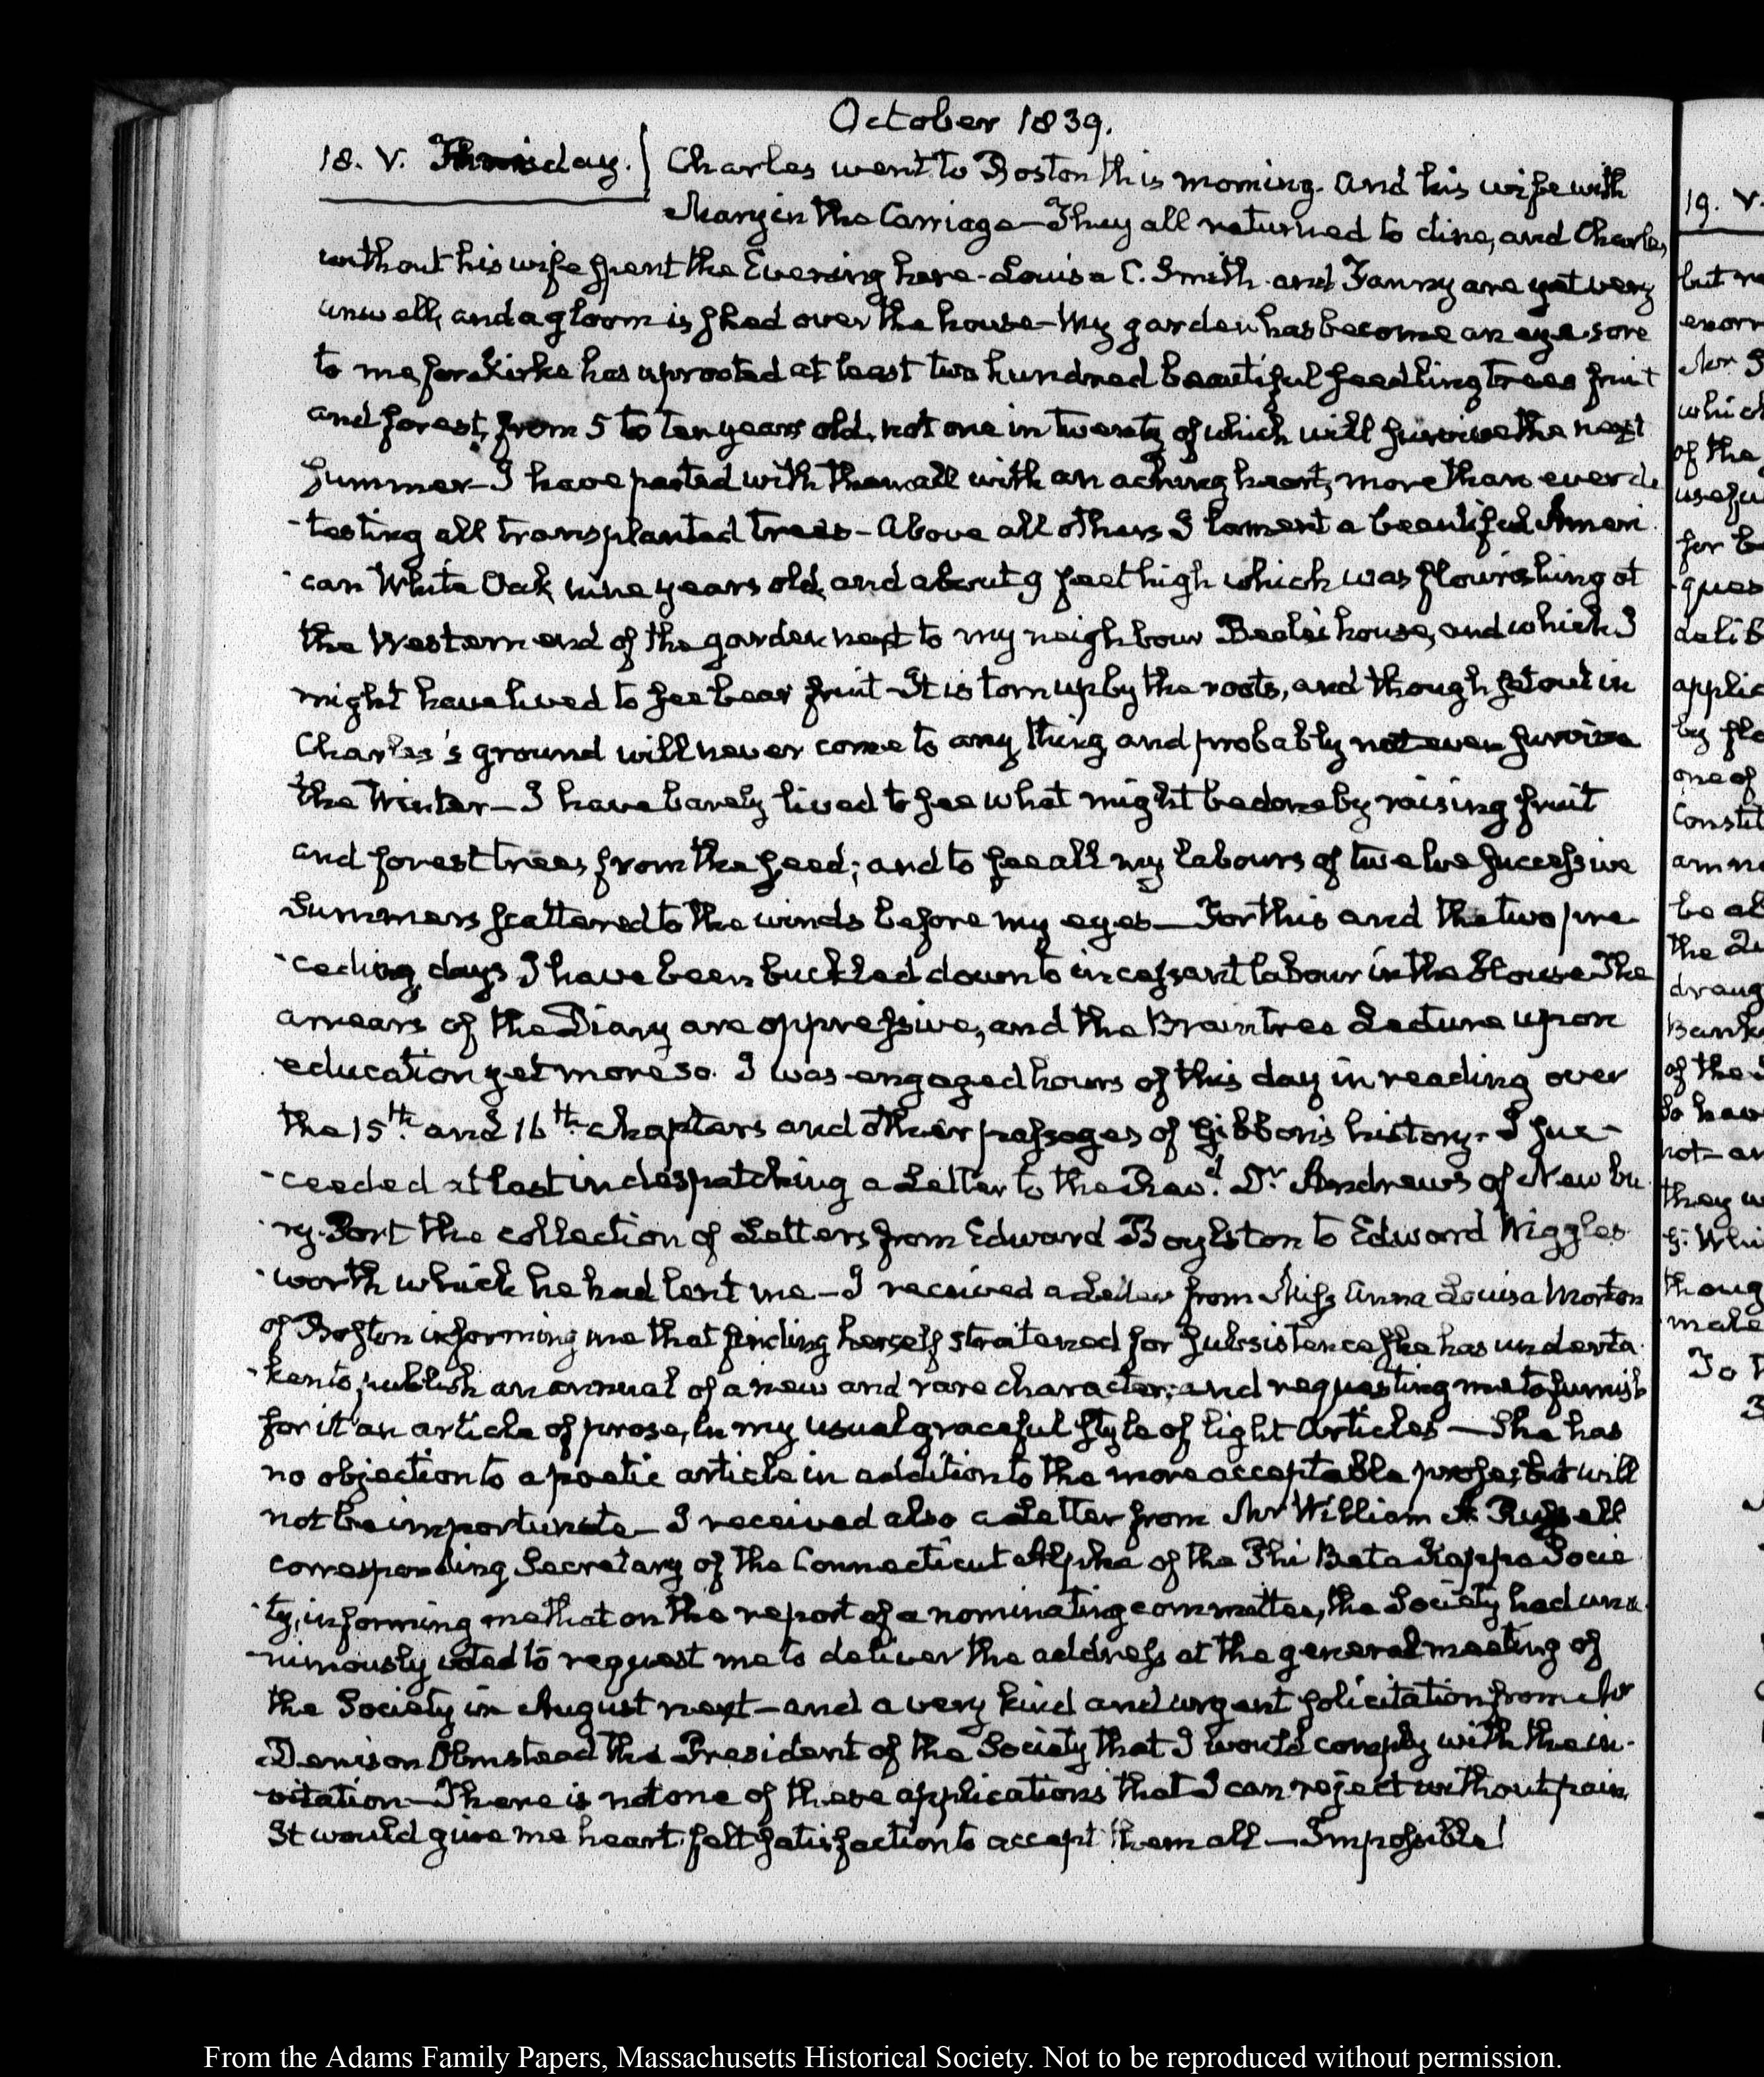 October 1839.
18. V. Thursday. Charles went to Boston this morning. and his wife with
Mary in the Carriage—They all returned to dine, and Charles,
without his wife spent the Evening here-Louisa C. Smith and Fanny are yet very
unwell, and a gloom is shed over the house—My garden has become an eye-sore
to me, for Kirke has uprooted at least two hundred beautiful seedling trees fruit
and forest, from 5 to ten years old, not one in twenty of which will survive the next
summer—I have parted with them all with an aching heart, more than ever de
-testing all transplanted trees-Above all others I lament a beautiful Ameri
-can White Oak, nine years old, and about 9 feet high which was flourishing at
the Western end of the garden next to my neighbour Beale's house, and which I
might have lived to see bear fruit-It is torn up by the roots, and though set out in
Charles's ground will never come to any thing and probably not even survive
the Winter—I have barely lived to see what might be done by raising fruit
and forest trees, from the seed; and to see all my labours of twelve successive
Summers scattered to the winds before my eyes—For this and the two pre
-ceding days I have been buckled down to incessant labour in the House The
arrears of the Diary are oppressive, and the Braintree Lecture upon
education yet more so. I was engaged hours of this day in reading over
the 15th. and 16th. chapters and other passages of Gibbon's history. I suc-
-ceeded at last in despatching a Letter to the Revd. Dr Andrews of Newbu
-ry-Port the collection of Letters from Edward Boylston to Edward Wiggles
-worth which he had lent me—I received a Letter from Miss Anna Louisa Morton
of Boston informing me that finding herself straitened for subsistence she has underta
-ken to publish an annual of a new and rare character; and requesting me to furnish
for it an article of prose, in my usual graceful style of light Articles—She has
no objection to a poetic article in addition to the more acceptable prose; but will
not be importunate—I received also a Letter from Mr William A. Russell
corresponding Secretary of the Connecticut Alpha of the Phi Beta Kappa Socie
-ty, informing me that on the report of a nominating committee, the Society had una
-nimously voted to request me to deliver the address at the general meeting of
the Society in August next—and a very kind and urgent solicitation from Mr
Denison Olmstead the President of the Society that I would comply with the in-
vitation—There is not one of these applications that I can reject without pain,
It would give me heart-felt satisfaction to accept them all—Impossible!
19. V.
but
of the
for
be
the
of the
they
male
From the Adams Family Papers, Massachusetts Historical Society. Not to be reproduced without permission.